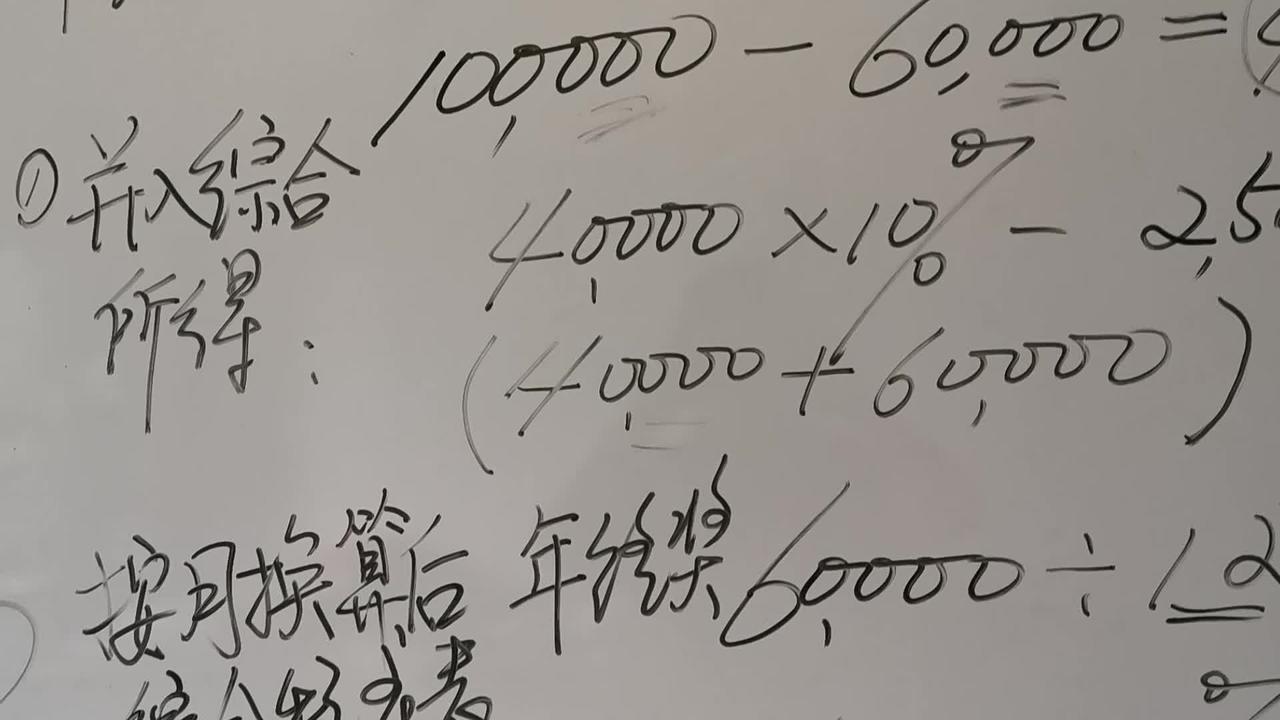 100,000 - 60,000 =
①并入综合
40,000 × 10% - 2,5
所得：
(40,000 + 60,000)
按月换算后 年终奖 60,000 ÷ 12
综合所得